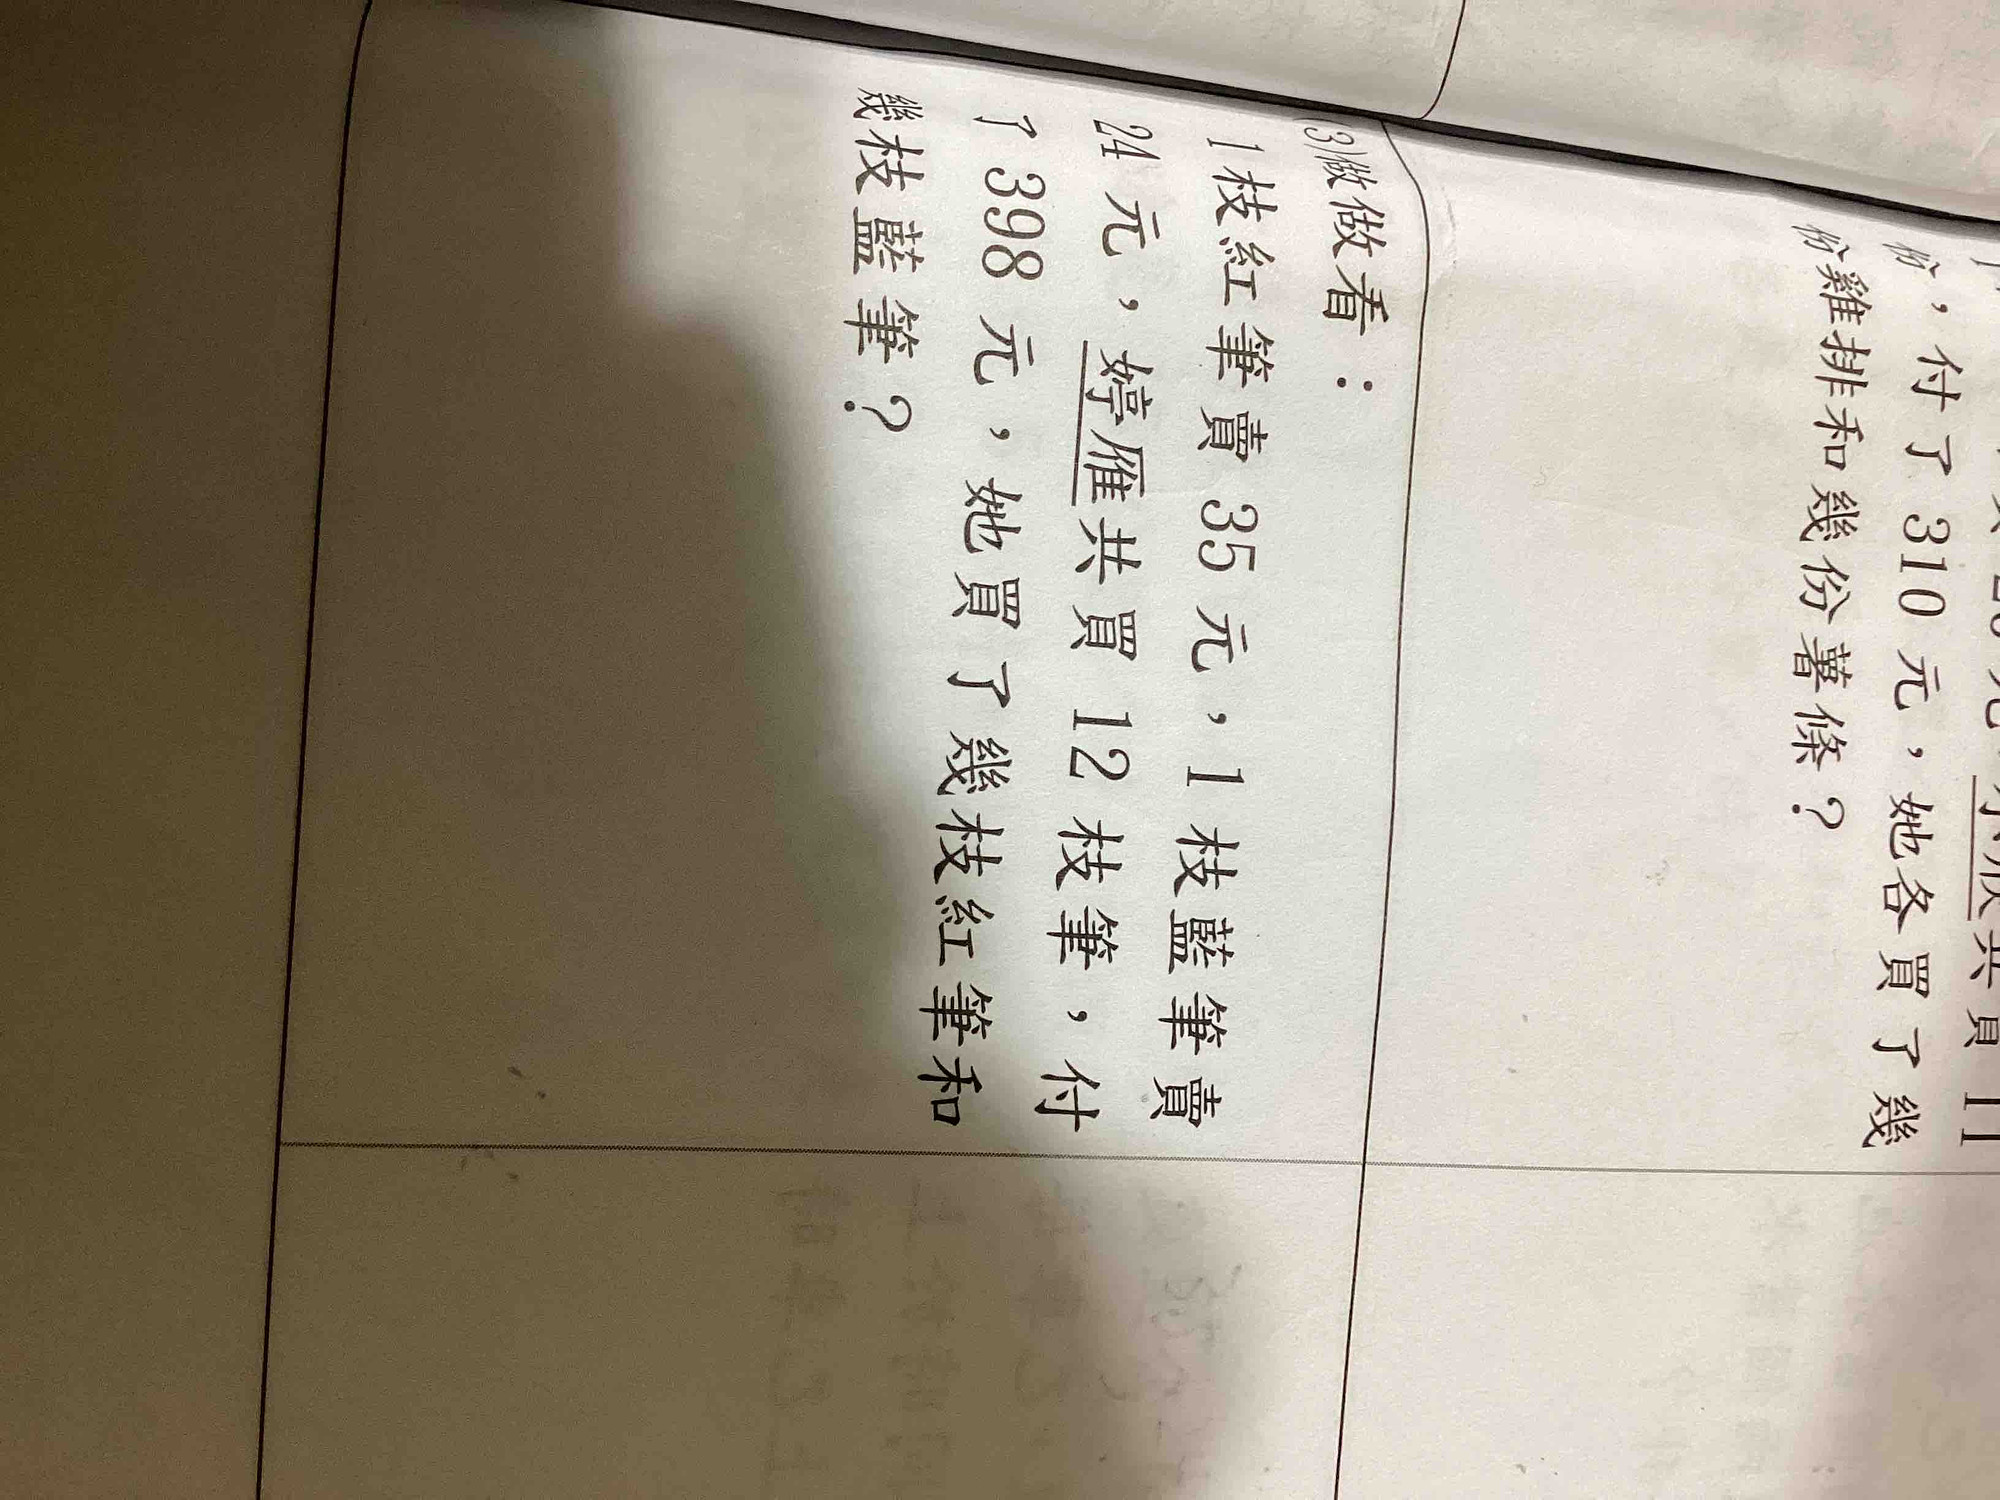 份，付了 310 元，她各買了幾
份雞排和幾份薯條？
(3)做做看：
1枝紅筆賣 35 元，1 枝藍筆賣
24 元，婷雁共買 12 枝筆，付
了 398 元，她買了幾枝紅筆和
幾枝藍筆？